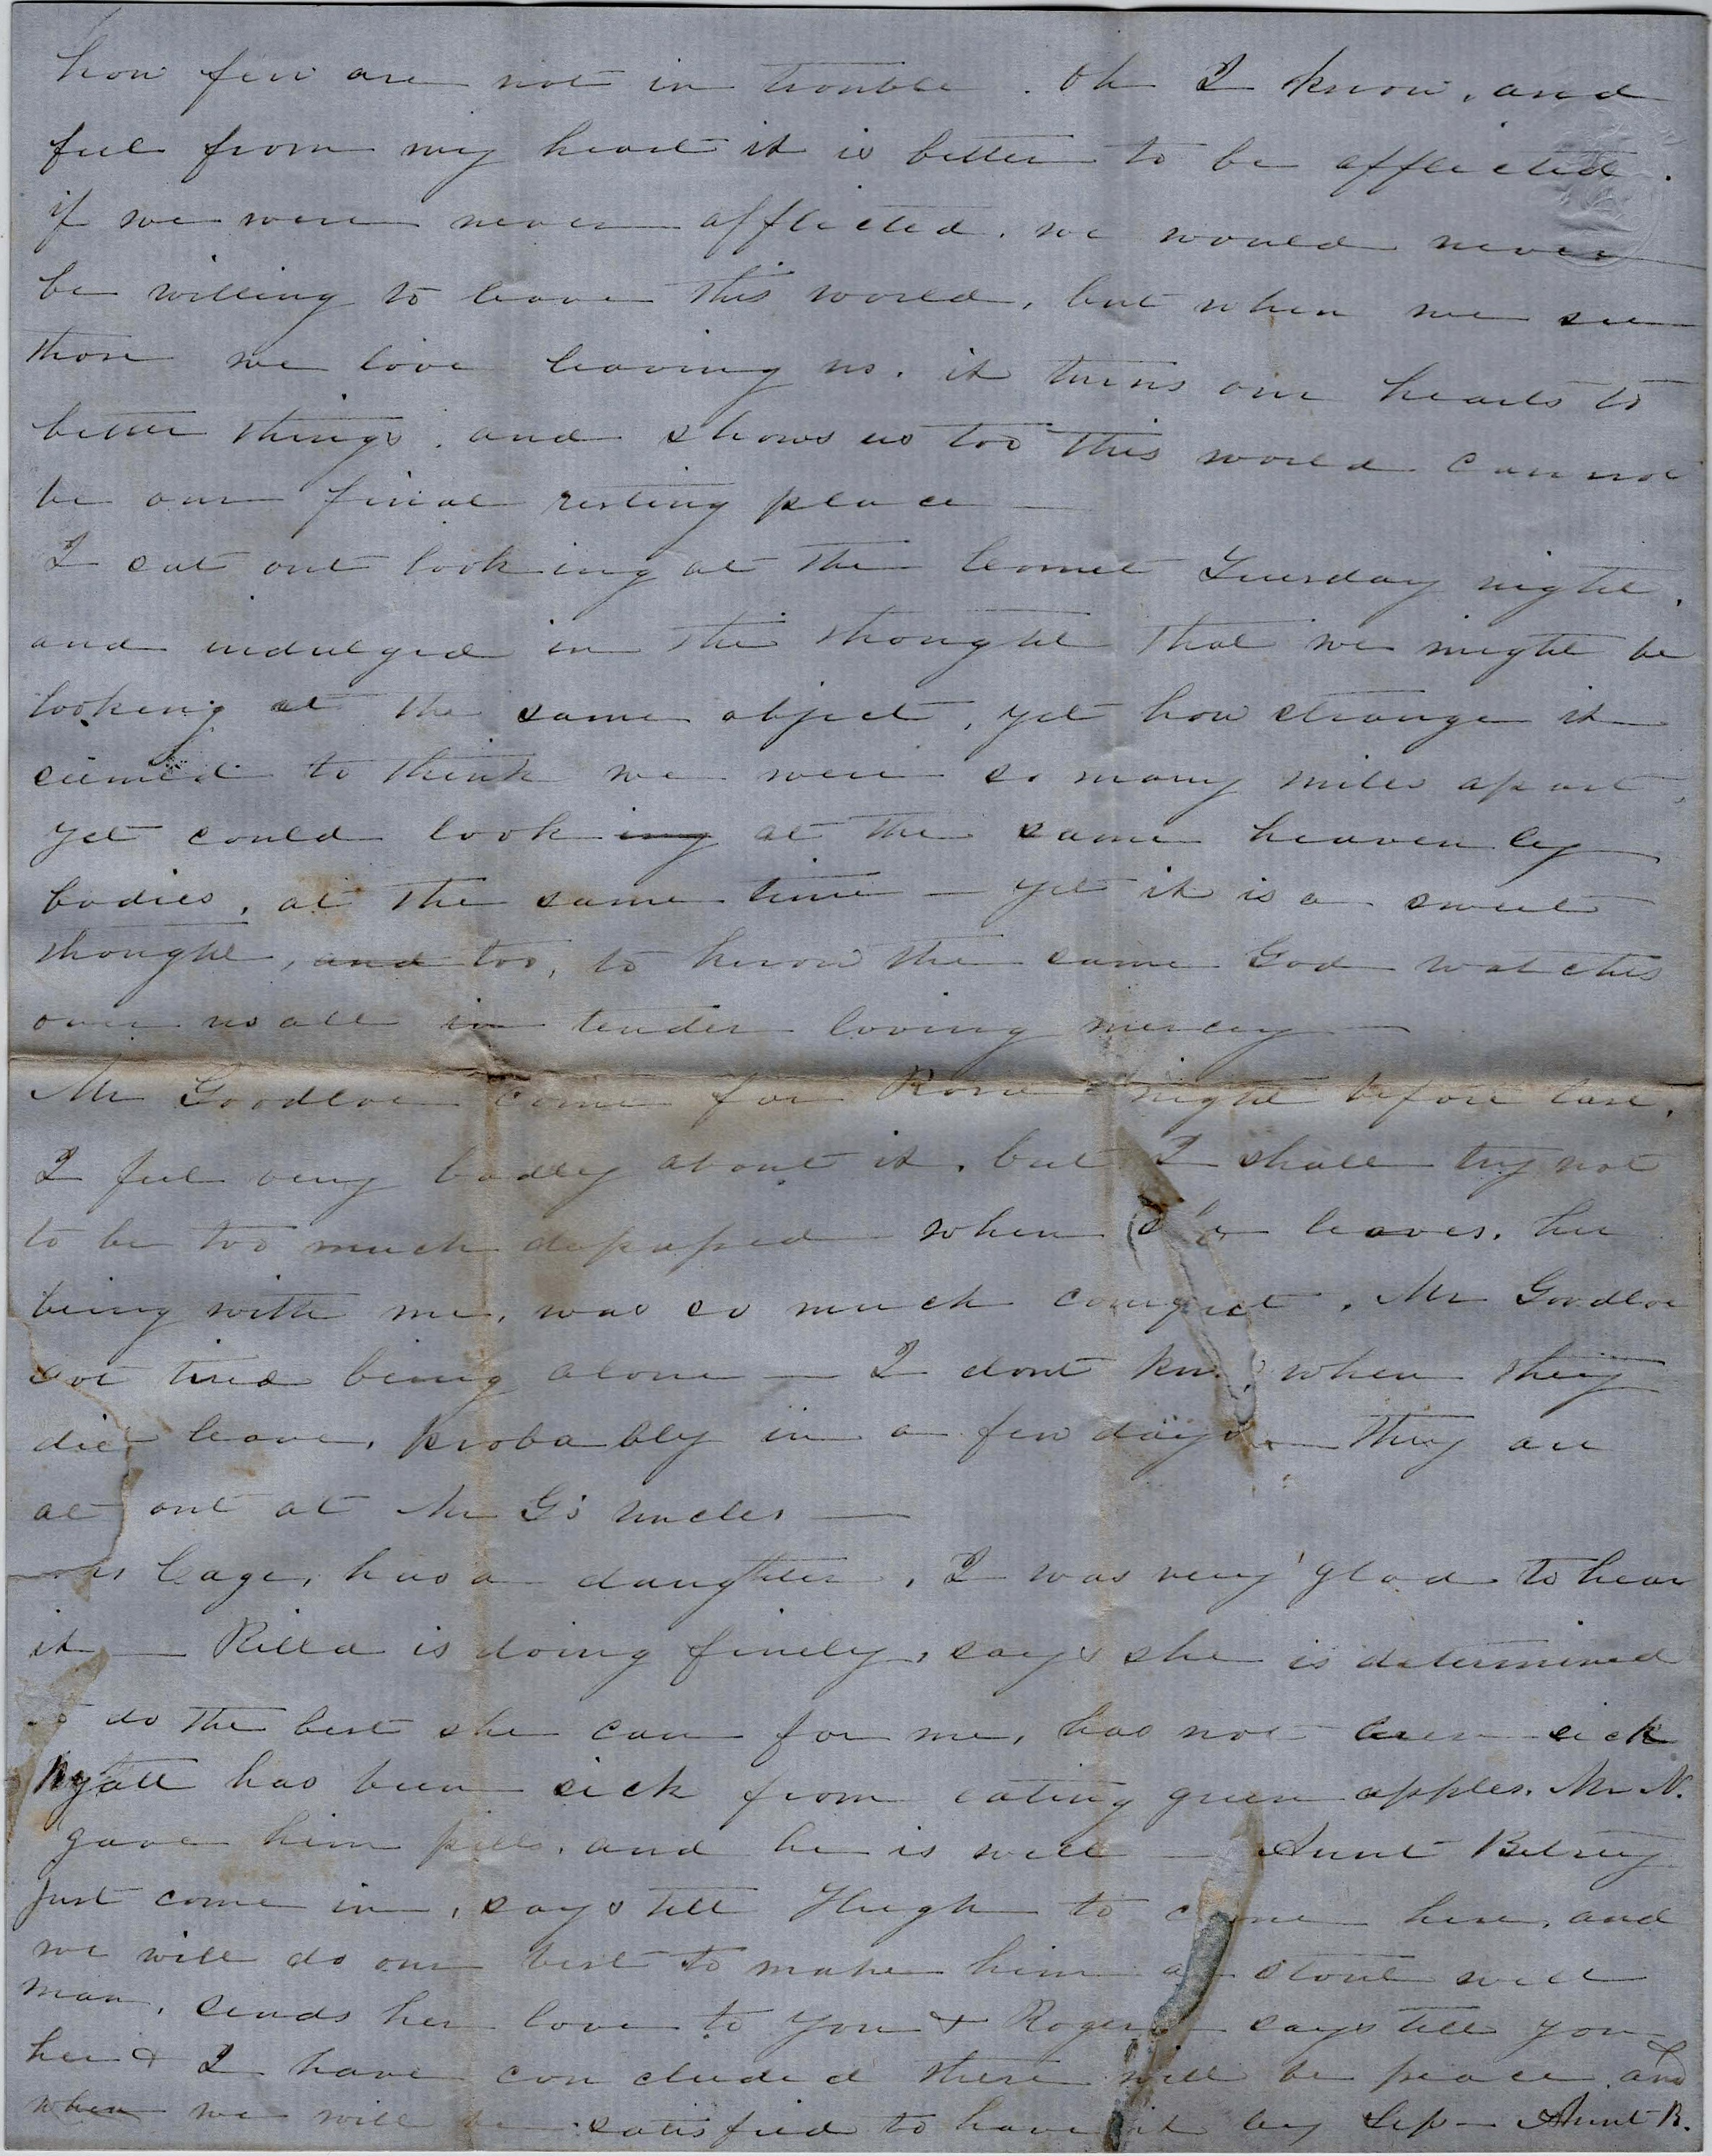 how few are not in trouble. Oh I know, and
feel from my heart it is better to be afflicted.
if we were never afflicted, we would never
be willing to leave this world, but when we see
those we love leaving us, it turns our hearts to
better things, and shows us too this world cannot
be our final resting place —
I sat out looking at the Comet Tuesday night,
and indulged in the thought that we might be
looking at the same object, yet how strange it
seemed to think we were so many miles apart,
yet could look ing at the same heavenly
bodies, at the same time — yet it is a sweet
thought, and too, to know the same God watches
over us all in tender loving mercy —
Mr Goodloe come for Rosa night before last,
I feel very badly about it, but I shall try not
to be too much depressed when she leaves, her
being with me, was so much comfort, Mr Goodloe
got tired being alone — I dont know when they
will leave, probably in a few days — They are
at out at Mr G's Uncles —
Mrs Cage, has a daughter, I was very glad to hear
it — Rilla is doing finely, says she is determined
to do the best she can for me, has not been sick
Wyatt has been sick from eating green apples, Mr N.
gave him pills, and he is well — Aunt Betsey
just come in, says tell Hugh to come here, and
we will do our best to make him a stout well
man, sends her love to you & Roger says tell you
her & I have concluded there will be peace, and
when we will be satisfied to have it by Sep — Aunt B.